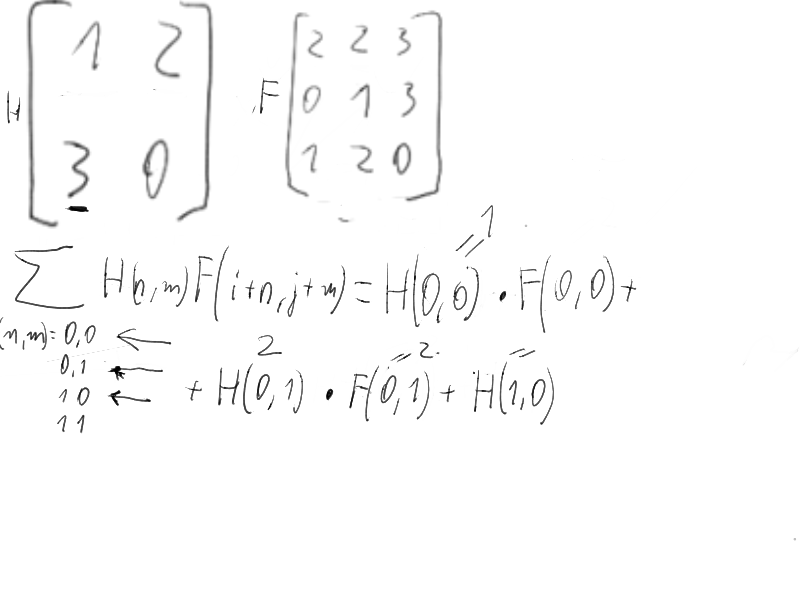 H [1 2
3 0]
F [2 2 3
0 1 3
1 2 0]
1
∑ H(n,m)F(i+n,j+m) = H(0,0) · F(0,0)+
(n,m)= 0,0 ←
2 = 2.
0,1 ←
+ H(0,1) · F(0,1) + H(1,0)
1 0 ←
1 1